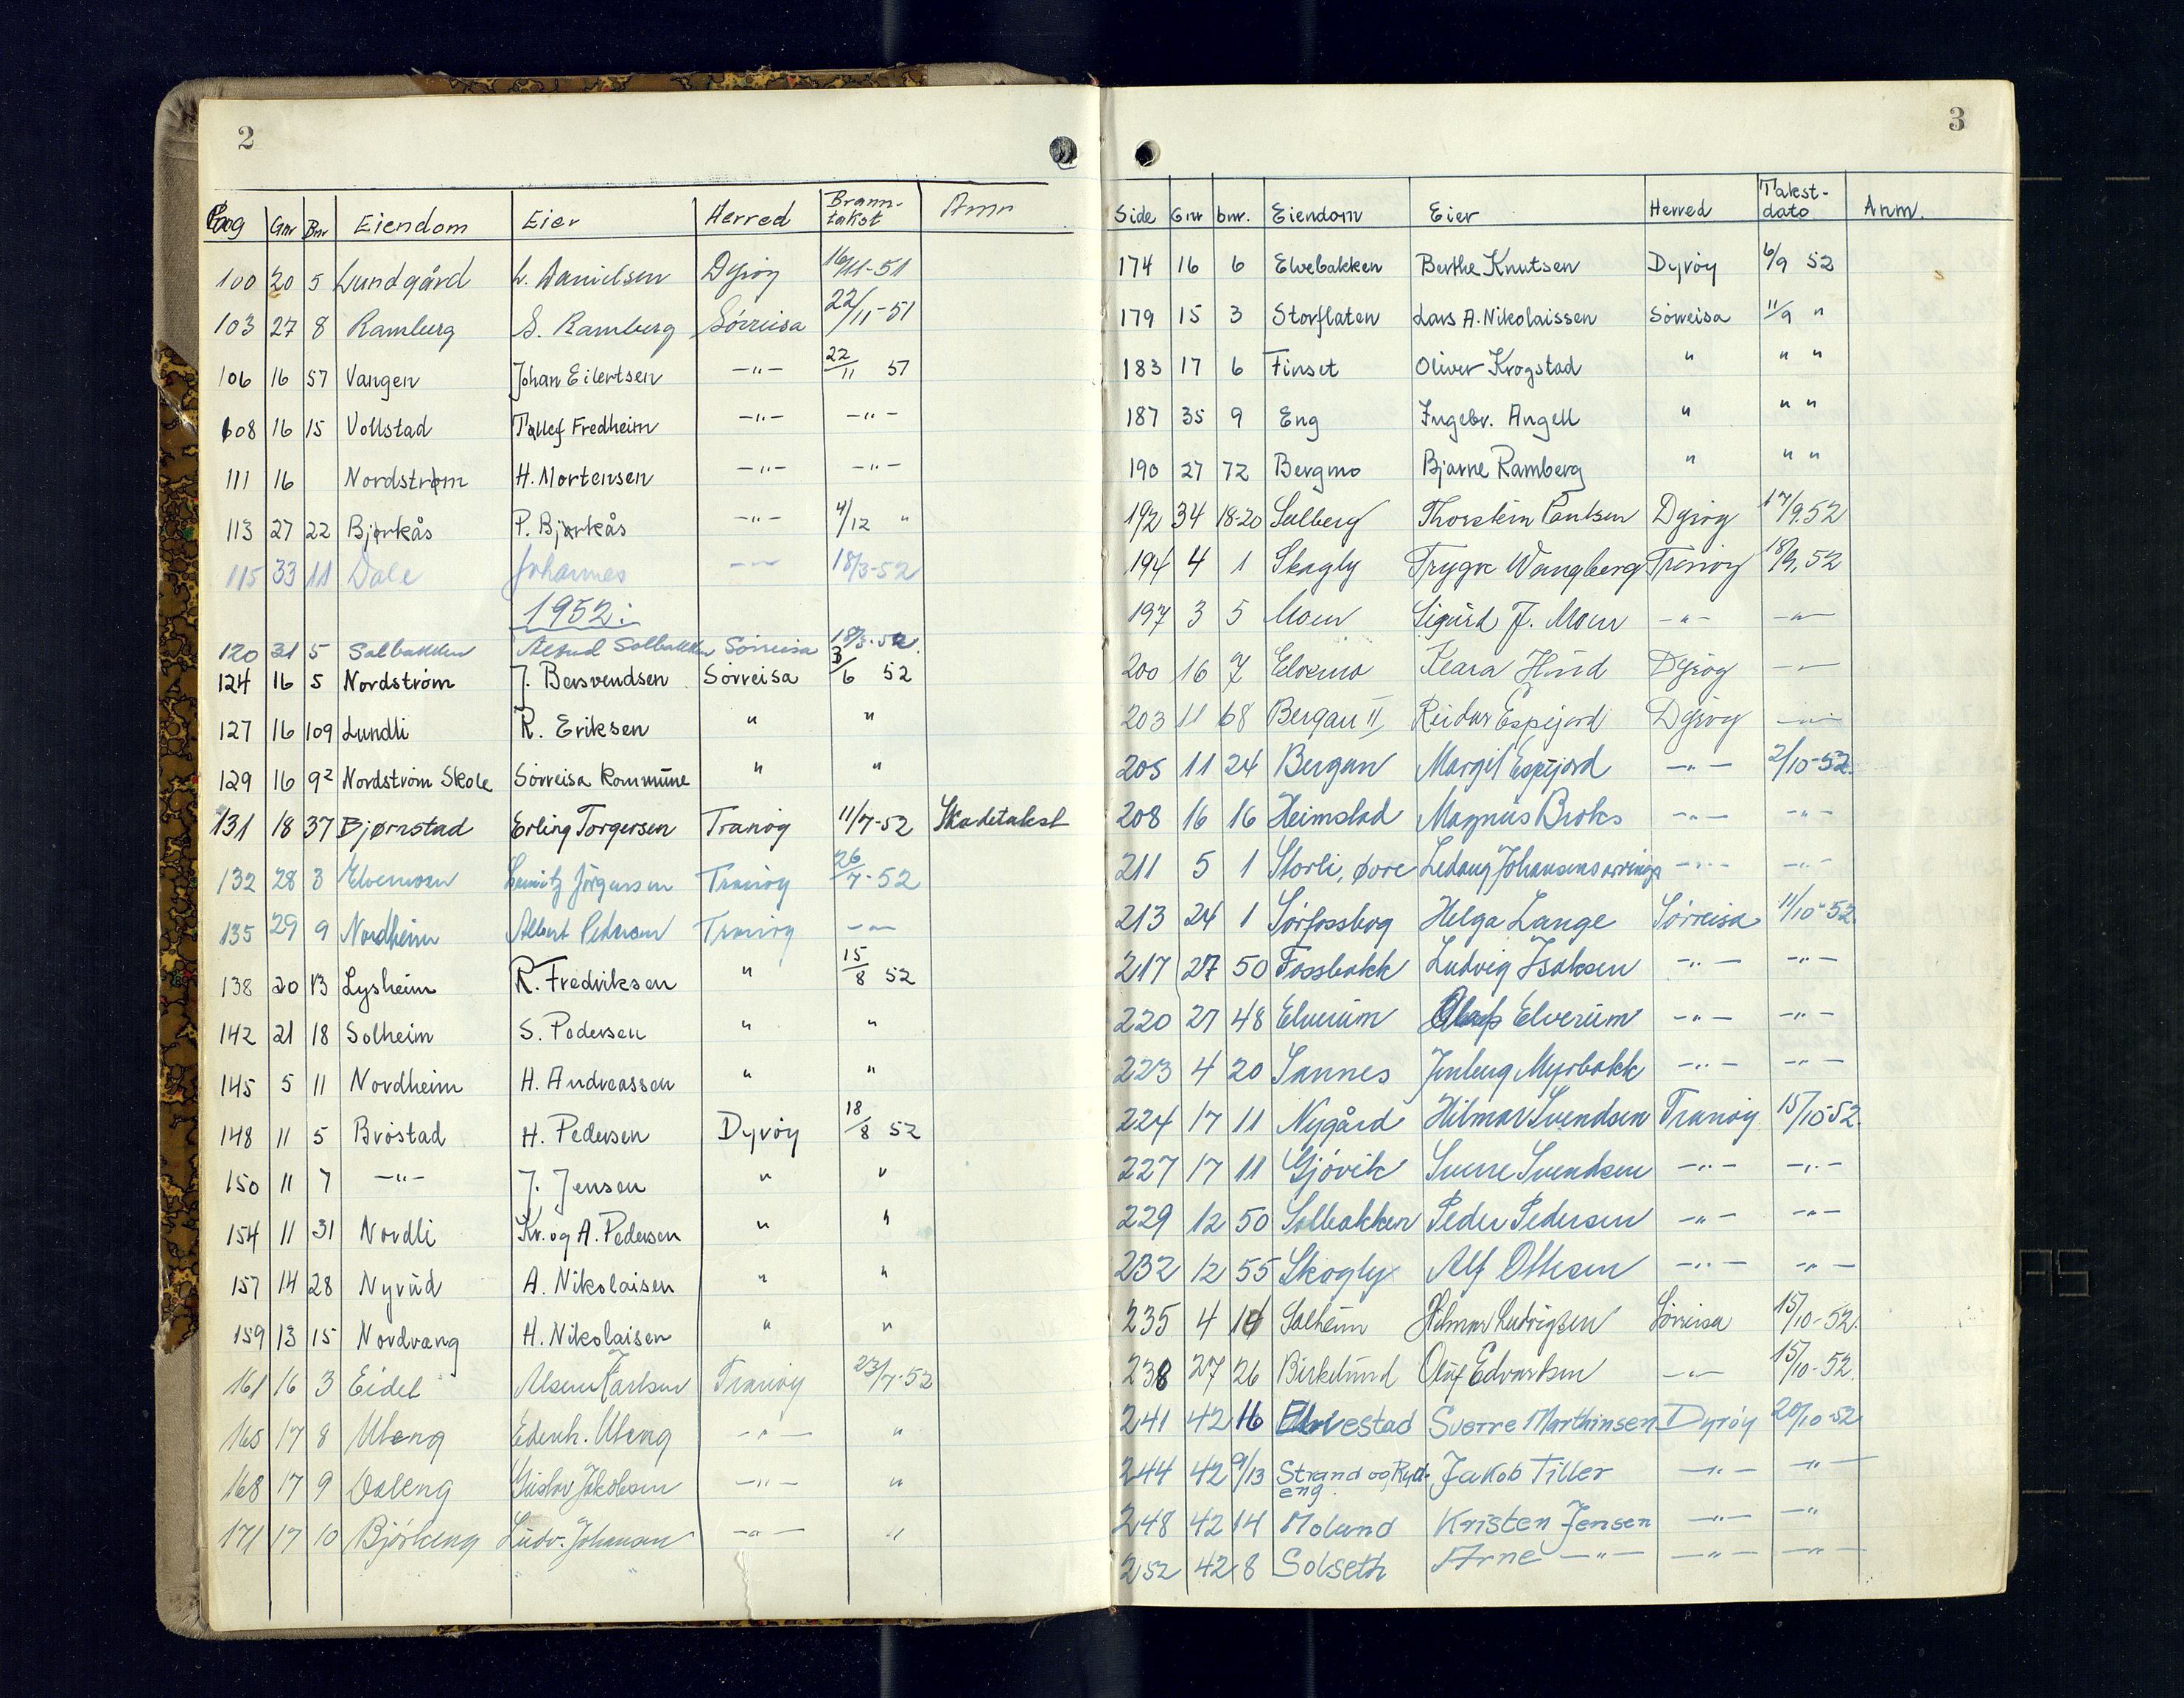 2
Pag Gnr Bnr Eiendom Eier Herred Brann- takst Anm
100 20 5 Lundgård L. Danielsen Dyröy 16/11-51
103 27 8 Ramberg S. Ramberg Sörreisa 22/11-51
106 16 57 Vangen Johan Eilertsen -"- 22/11 51
108 16 15 Vollstad Tallef Fredheim -"- -"-
111 16 Nordstrøm H. Mortensen -"- -"-
113 27 22 Bjørkås P. Bjørkås -"- 4/12 "
115 33 11 Dale Johannes -"- 18/3-52
1952:
120 31 5 Solbakken Solbakken Sörreisa 18/3-52.
124 16 5 Nordström J. Bersvendsen Sörreisa 3/6 52
127 16 109 Lundli R. Eriksen " "
129 16 92 Nordström Skole Sörreisa kommune " "
131 18 37 Bjørnstad Erling Torgersen Tranöy 11/7-52 Skadetakst
132 28 3 Elvemoen Jörgensen Tranöy 26/7-52
135 29 9 Nordheim Albert Pedersen Tranöy -"-
138 20 13 Lysheim R. Fredriksen " 15/8 52
142 21 18 Solheim S. Pedersen " "
145 5 11 Nordheim H. Andreassen " "
148 11 5 Bröstad H. Pedersen Dyröy 18/8 52
150 11 7 -"- J. Jensen " "
154 11 31 Nordli Kr. og A. Pedersen " "
157 14 28 Nyrud A. Nikolaisen " "
159 13 15 Nordvang H. Nikolaisen " "
161 16 3 Eidel Karlsen Tranöy 23/7-52
165 17 8 Uteng Edvinh. Uteng -"- "
168 17 9 Oaleng Gustav Jakobsen -"- "
171 17 10 Björkeng Ludv. Johansen -"- "
3
Side Gnr bnr. Eiendom Eier Herred Takst- dato Anm.
174 16 6 Elvebakken Berthe Knutsen Dyröy 6/9 52
179 15 3 Storflaten Lars A. Nikolaissen Sörreisa 11/9 "
183 17 6 Finset Oliver Krogstad " " "
187 35 9 Eng Ingebr. Angell " " "
190 27 72 Bergmo Bjarne Ramberg " " "
192 34 18-20 Solberg Thorstein Paulsen Dyröy 17/9.52
194 4 1 Skogly Trygve Wangberg Tranöy 18/9.52
197 3 5 Moen Sigurd J. Moen -"- -"-
200 16 7 Elvemo Klara Dyröy -"-
203 11 68 Bergan II Reidar Espejord Dyröy -"-
205 11 24 Bergan Margit Espejord -"- 2/10-52.
208 16 16 Heimstad Magnus Broks -"- -"-
211 5 1 Storli, øvre Ledang Johansens arvinger -"- -"-
213 24 1 Sörfossbog Helga Lange Sörreisa 11/10-52.
217 27 50 Fossbakk Ludvig Isaksen -"- -"-
220 27 48 Elverum Olaf Elverum -"- -"-
223 4 20 Sannes Myrbakk -"- -"-
224 17 11 Nygård Hilmar Svendsen Tranöy 15/10-52.
227 17 11 Gjövik Sverre Svendsen -"- -"-
229 12 50 Solbakken Peder Pedersen -"- -"-
232 12 55 Skogly Alf Ottesen -"- -"-
235 4 Solheim Hilmar Ludvigsen Sörreisa 15/10-52.
238 27 26 Birkelund Oluf Edvardsen -"- 15/10-52.
241 42 16 Elvestad Sverre Marthinsen Dyröy 20/10-52
244 42 9/13 Strand og Ryd- eng. Jakob Tiller -"- -"-
248 42 14 Moland Kristen Jensen -"- -"-
252 42 8 Solseth Arne -"- -"- -"-